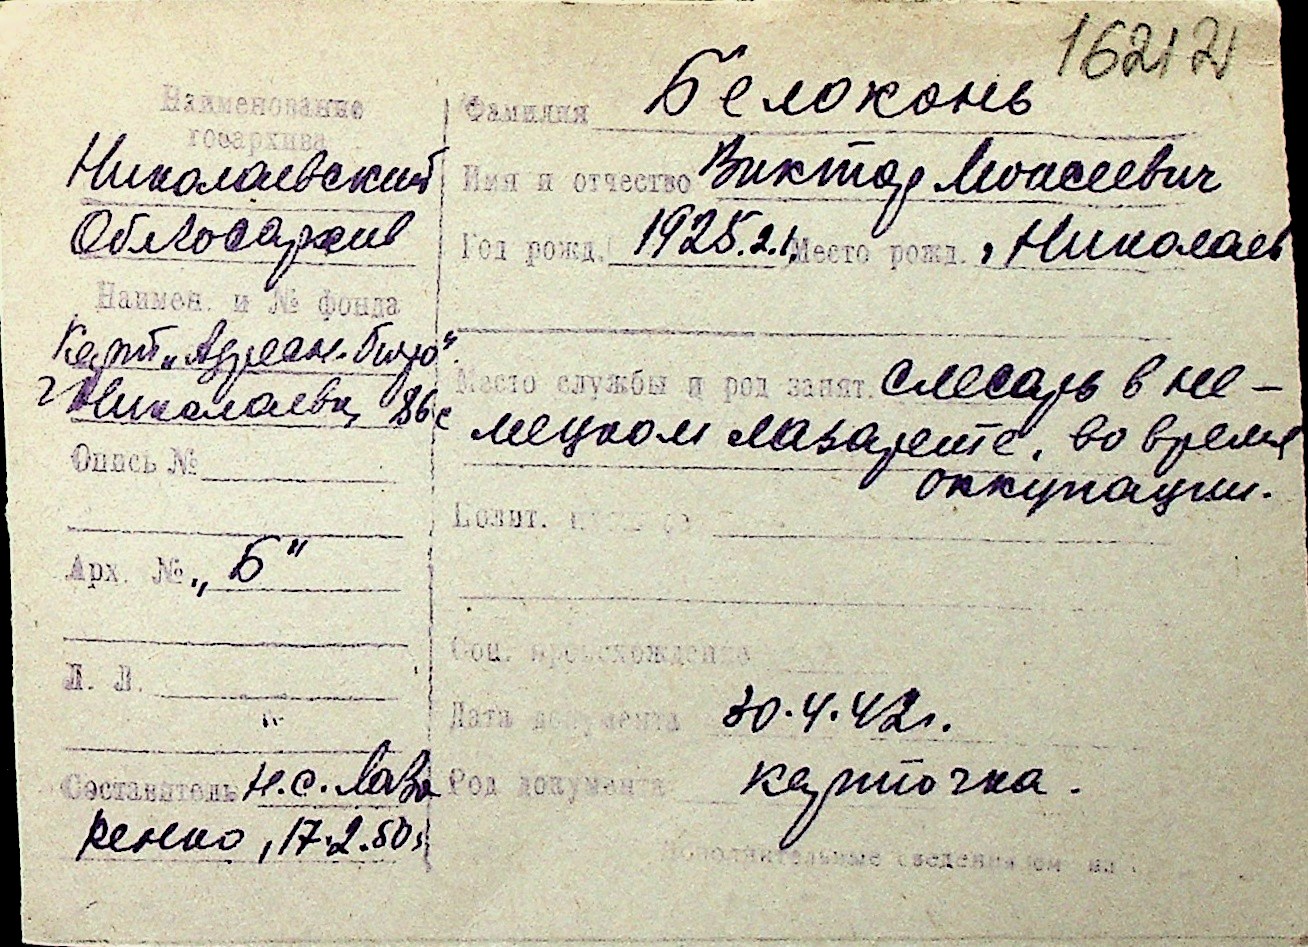 16212
Наименование
госархива
Николаевский
Облгосархив
Наимен. и № фонда
Карт. „Адресн. бюро".
г Николаева,
Опись №
Арх. № „Б"
Л. Л.
Составитель Н.С. Лав
ренко, 17.2.50г
Фамилия Белоконь
Имя и отчество Виктор Моисеевич
Год рожд. 1925.2.1, Место рожд. , Николаев
Место службы и род занят. слесарь в не-
мецком лазарете, во время
оккупации.
Соц. происхождение
Дата документа 30.4.42г.
Род документа карточка.
Дополнительные сведения см на